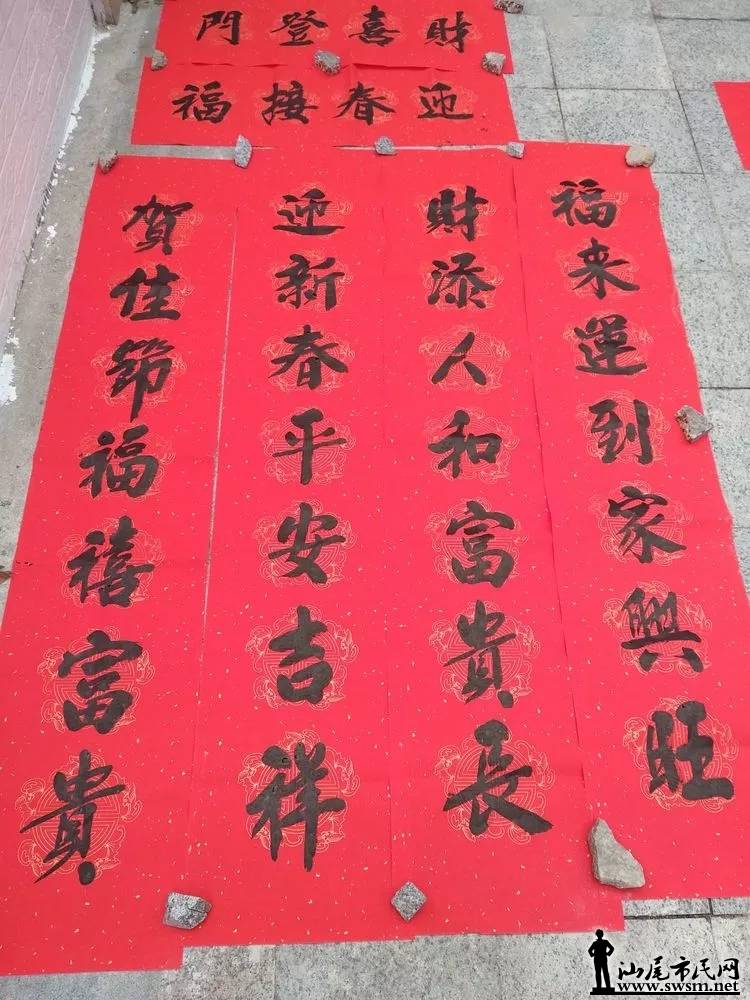 財喜登門
迎春接福
福来運到家興旺
財添人和富貴長
迎新春平安吉祥
賀佳節福禧富貴
汕尾市民网
www.swsm.net